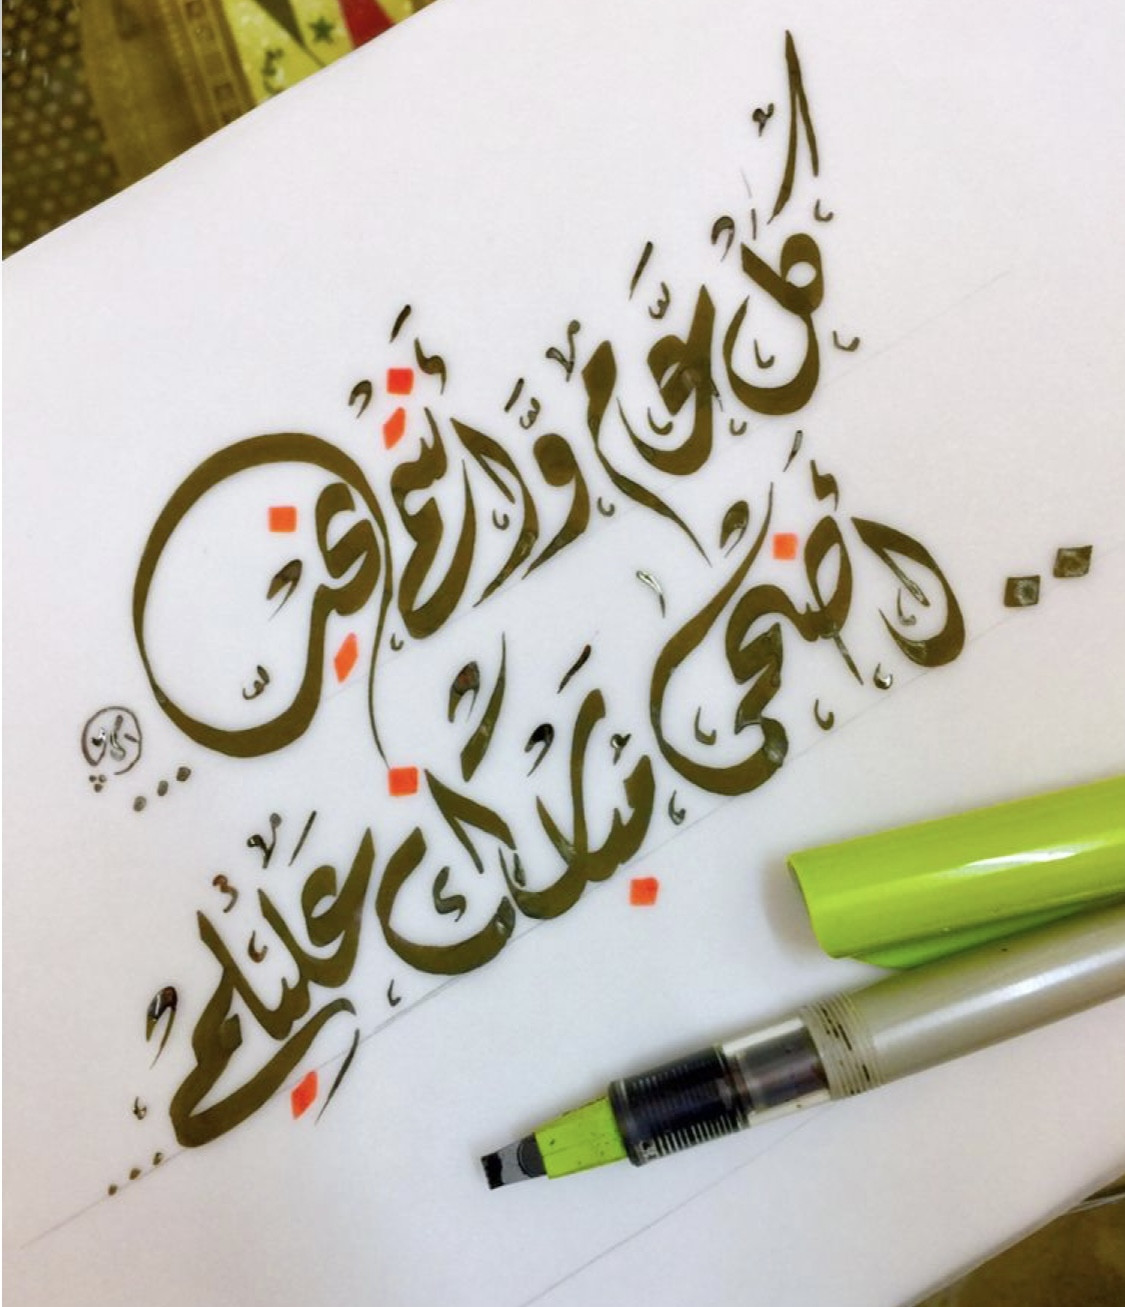 كل عام وأنتم بخير
أضحى مبارك عليكم